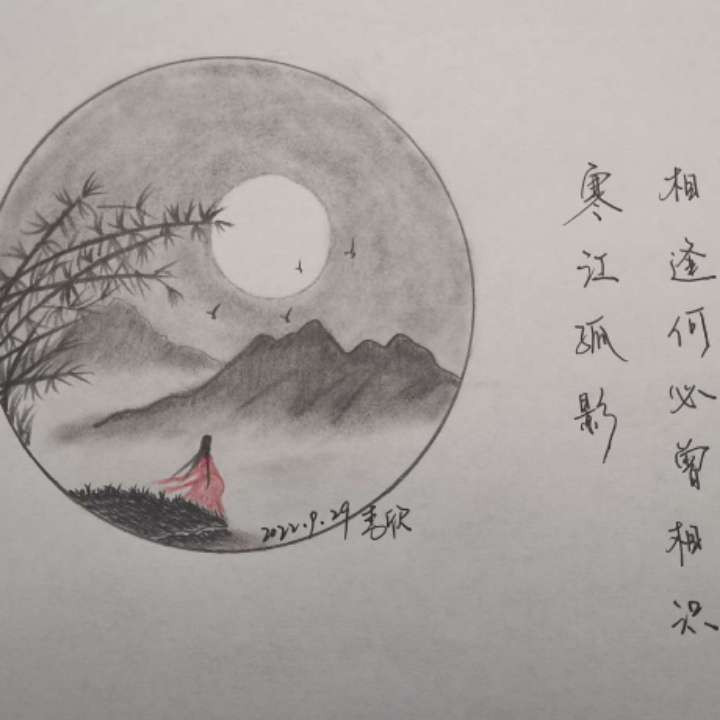 相逢何必曾相识
寒江孤影
2022.9.29 李欣